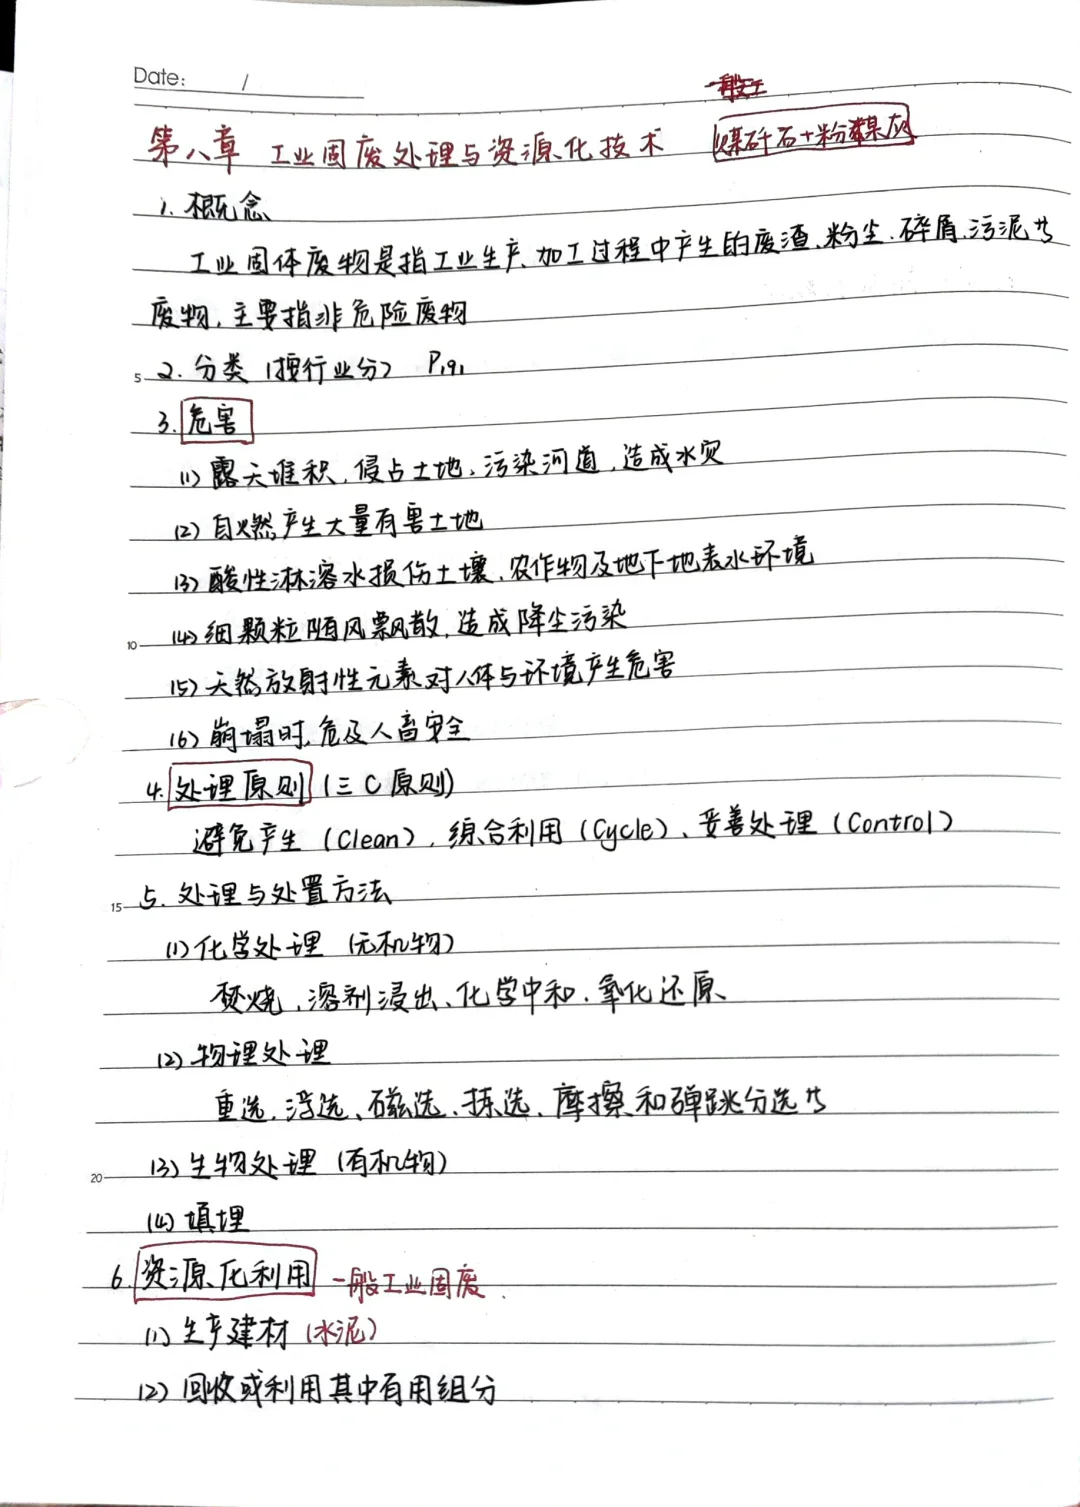 Date: /
第八章 工业固废处理与资源化技术 煤矸石+粉煤灰
1. 概念
工业固体废物是指工业生产、加工过程中产生的废渣、粉尘、碎屑、污泥等
废物，主要指非危险废物
5 2. 分类（按行业分） P191
3. 危害
(1) 露天堆积，侵占土地，污染河道，造成水灾
(2) 自燃产生大量有害土地
(3) 酸性淋溶水损伤土壤、农作物及地下地表水环境
10 (4) 细颗粒随风飘散，造成降尘污染
(5) 天然放射性元素对人体与环境产生危害
(6) 崩塌时，危及人畜安全
4. 处理原则（三C原则）
避免产生（Clean）、综合利用（Cycle）、妥善处理（Control）
15 5. 处理与处置方法
(1) 化学处理（无机物）
焚烧、溶剂浸出、化学中和、氧化还原
(2) 物理处理
重选、浮选、磁选、拣选、摩擦和弹跳分选等
20 (3) 生物处理（有机物）
(4) 填埋
6. 资源化利用 一般工业固废
(1) 生产建材（水泥）
(2) 回收或利用其中有用组分